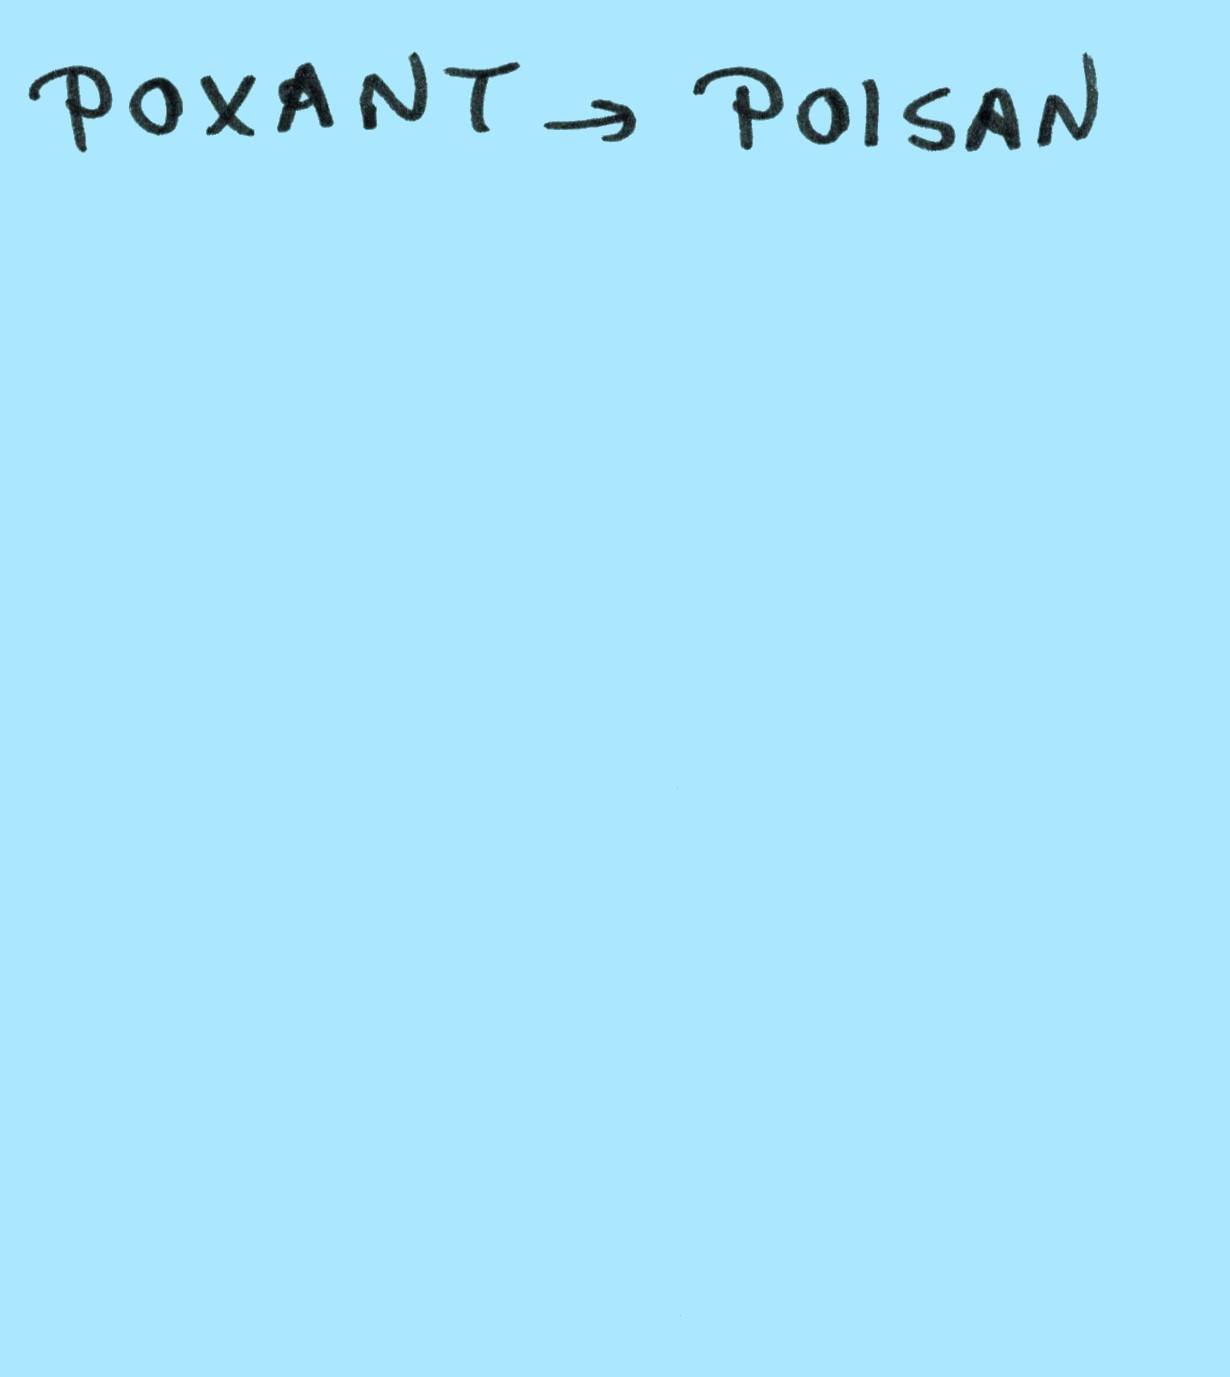 POXANT → POISAN